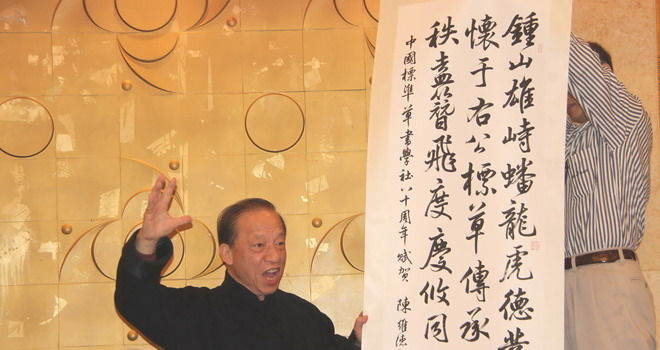 鍾山雄峙蟠龍虎德
懷于右公標草傳承
秩盍簪飛度慶攸同
中國標準草書學社八十周年賦賀 陳維德